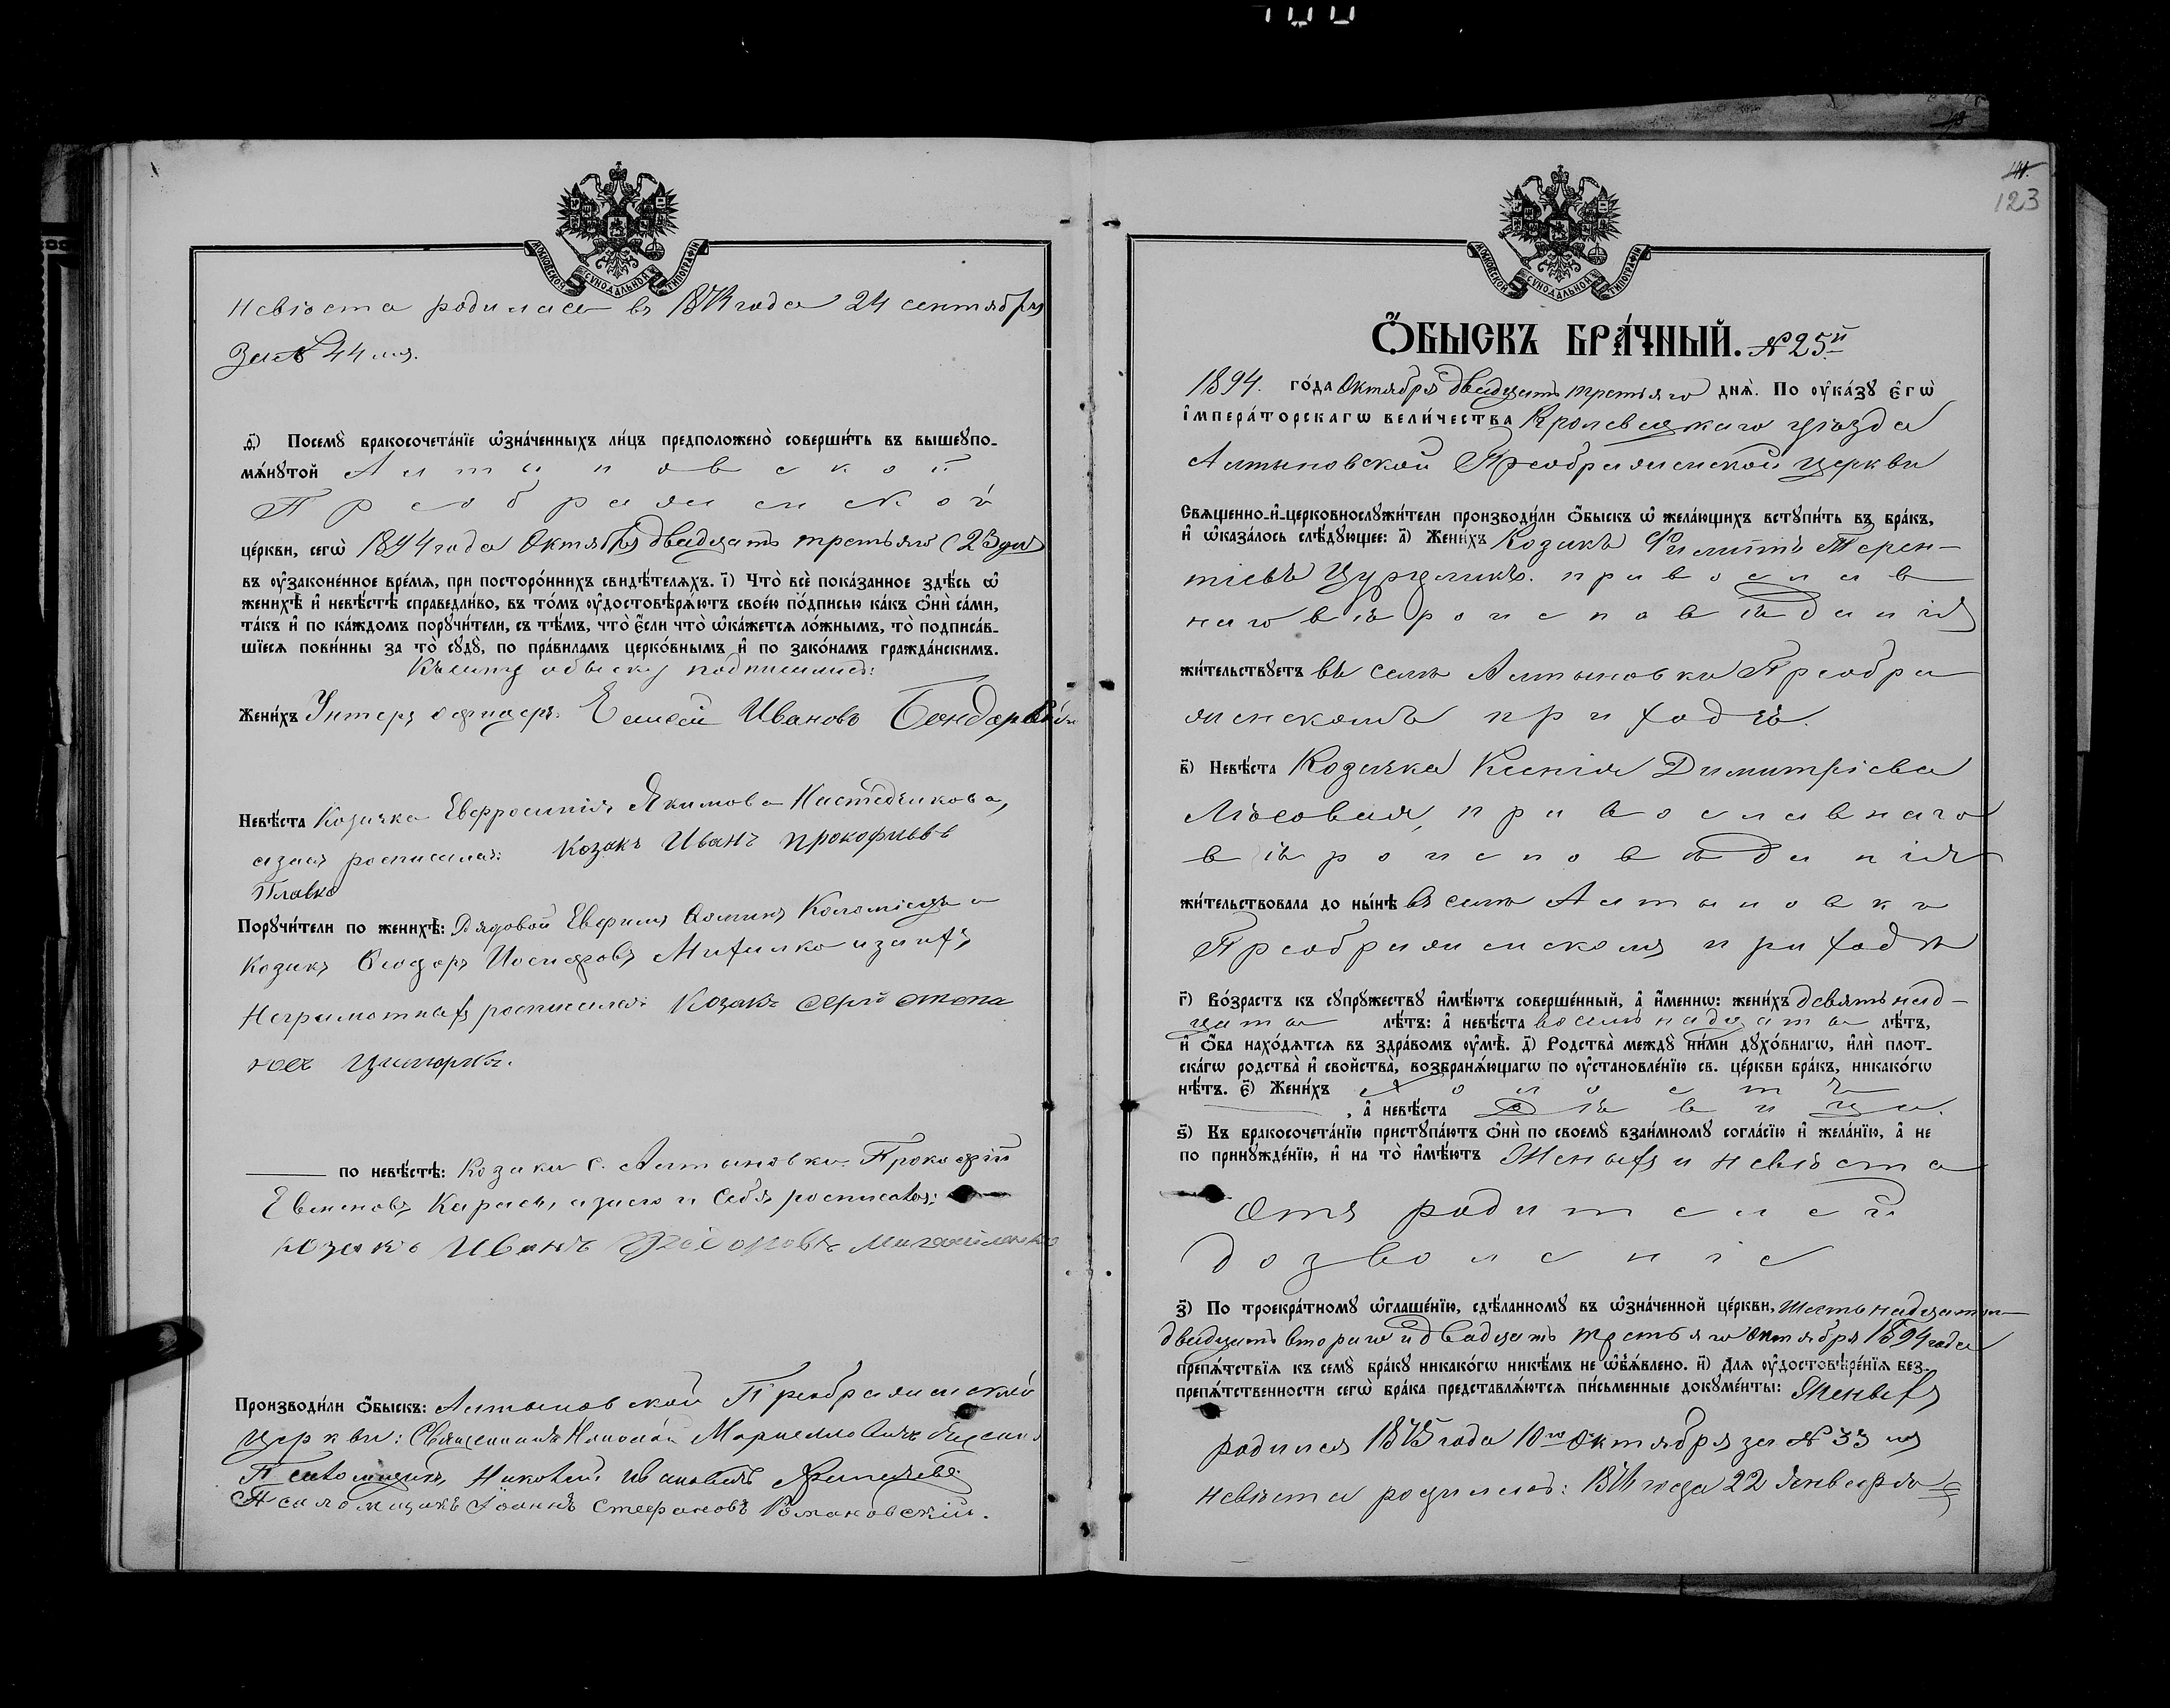 МОСКОВСКОЙ СУНОДАЛЬНОЙ ТИПОГРАФІИ
невѣста родилась въ 1874 года 24 сентября
за № 44 мъ.
Посемꙋ̀ бракосочета́нїе ѡ҆зна́ченныхъ ли́цъ предположено̀ соверши́ть въ вышеꙋпо-
мѧ́нꙋтой Алтыновской
Преображенской
це́ркви, сегѡ̀ 1894 года Октября двадцать третьяго (23 дня)
въ ᲂу҆законе́нное вре́мѧ, при посторо́ннихъ свидѣ́телѧхъ. і҃) Что̀ всѐ пока́занное здѣ́сь ѡ҆
женихѣ̀ и҆ невѣ́стѣ справедли́во, въ то́мъ ᲂу҆достовѣрѧ́ютъ свое́ю по́дписью ка́къ ѻ҆нѝ са́ми,
та́къ и҆ по ка́ждомъ порꙋчи́тели, съ тѣ́мъ, что̀ є҆́сли что̀ ѡ҆ка́жетсѧ ло́жнымъ, то̀ подписа́в-
шїесѧ пови́нны за то̀ сꙋдꙋ̀, по пра́виламъ церко́внымъ и҆ по зако́намъ гражда́нскимъ.
Къ сему обыску подписались:
Жени́хъ Унтеръ офицеръ Ивановъ
Невѣ́ста Козачка Евфросинія Якимова
росписался: Козакъ Иванъ Прокофьевъ
Плавко
Порꙋчи́тели по женихѣ̀: Рядовой Евфимъ Коломіецъ и
Козакъ Ѳеодоръ Іосифовъ
неграмотныхъ росписался Козакъ
по невѣ́стѣ: Козаки с. Алтыновки Прокофій
Карась, и себя росписался:
козакъ Иванъ
Производи́ли ѻ҆́быскъ: Алтыновской Преображенской
церкви: Священникъ
Псаломщикъ Николай Ивановичъ
Псаломщикъ Іоаннъ Стефановъ Романовскій.
123
МОСКОВСКОЙ СУНОДАЛЬНОЙ ТИПОГРАФІИ
Ѻ҆БЫСКЪ БРА́ЧНЫЙ. № 25й
1894. го́да Октября двадцать третьяго днѧ̀. По ᲂу҆ка́зꙋ є҆гѡ̀
і҆мпера́торскагѡ вели́чества Кролевецкаго уѣзда
Алтыновской Преображенской церкви
Свѧщенно-и҆-церковнослꙋжи́тели производи́ли ѻ҆́быскъ ѡ҆ жела́ющихъ встꙋпи́ть въ бра́къ,
и҆ ѡ҆каза́лось слѣ́дꙋющее: а҃) Жени́хъ Козакъ Филиппъ Терен-
тіевъ православ
наго вѣроисповѣданія
жи́тельствꙋетъ въ селѣ Алтыновки Преобра
женскомъ приходѣ.
в҃) Невѣ́ста Козачка Ксенія Димитріева
Лѣсовая, православнаго
вѣроисповѣданія
жи́тельствовала до ны́нѣ въ селѣ Алтыновки
Преображенскомъ приходѣ
г҃) Во́зрастъ къ сꙋпрꙋ́жествꙋ и҆мѣ́ютъ соверше́нный, а҆̀ и҆́меннѡ: жени́хъ девятьнад-
цать лѣ́тъ: а҆̀ невѣ́ста восемьнадцать лѣ́тъ,
и҆ ѻ҆́ба нахо́дѧтсѧ въ здра́вомъ ᲂу҆мѣ̀. д҃) Родства̀ междꙋ̀ ни́ми дꙋхо́внагѡ, и҆лѝ плот-
ска́гѡ родства̀ и҆ сво́йства, возбранѧ́ющагѡ по ᲂу҆становле́нїю св. це́ркви бра́къ, никако́гѡ
нѣ́тъ. є҃) Жени́хъ холостъ
, а҆̀ невѣ́ста дѣвица.
ѕ҃) Къ бракосочета́нїю пристꙋпа́ютъ ѻ҆нѝ по своемꙋ̀ взаи́мномꙋ согла́сїю и҆ жела́нїю, а҆̀ не
по принꙋжде́нїю, и҆ на то̀ и҆мѣ́ютъ Женихъ и невѣста
отъ родителей
дозволеніе
з҃) По троекра́тномꙋ ѡ҆глаше́нїю, сдѣ́ланномꙋ въ ѡ҆зна́ченной це́ркви, шестьнадцатаго
двадцать втораго и двадцать третьяго октября 1894 года
препѧ́тствїѧ къ семꙋ̀ бра́кꙋ никако́гѡ никѣ́мъ не ѡ҆б̾ѧ́влено. и҃) Длѧ ᲂу҆достовѣре́нїѧ без-
препѧ́тственности сегѡ̀ бра́ка представлѧ́ютсѧ пи́сьменные докꙋме́нты: Женихъ
родился 1875 года 10го Октября за № 33 мъ
невѣста родилась: 1876 года 22 Января